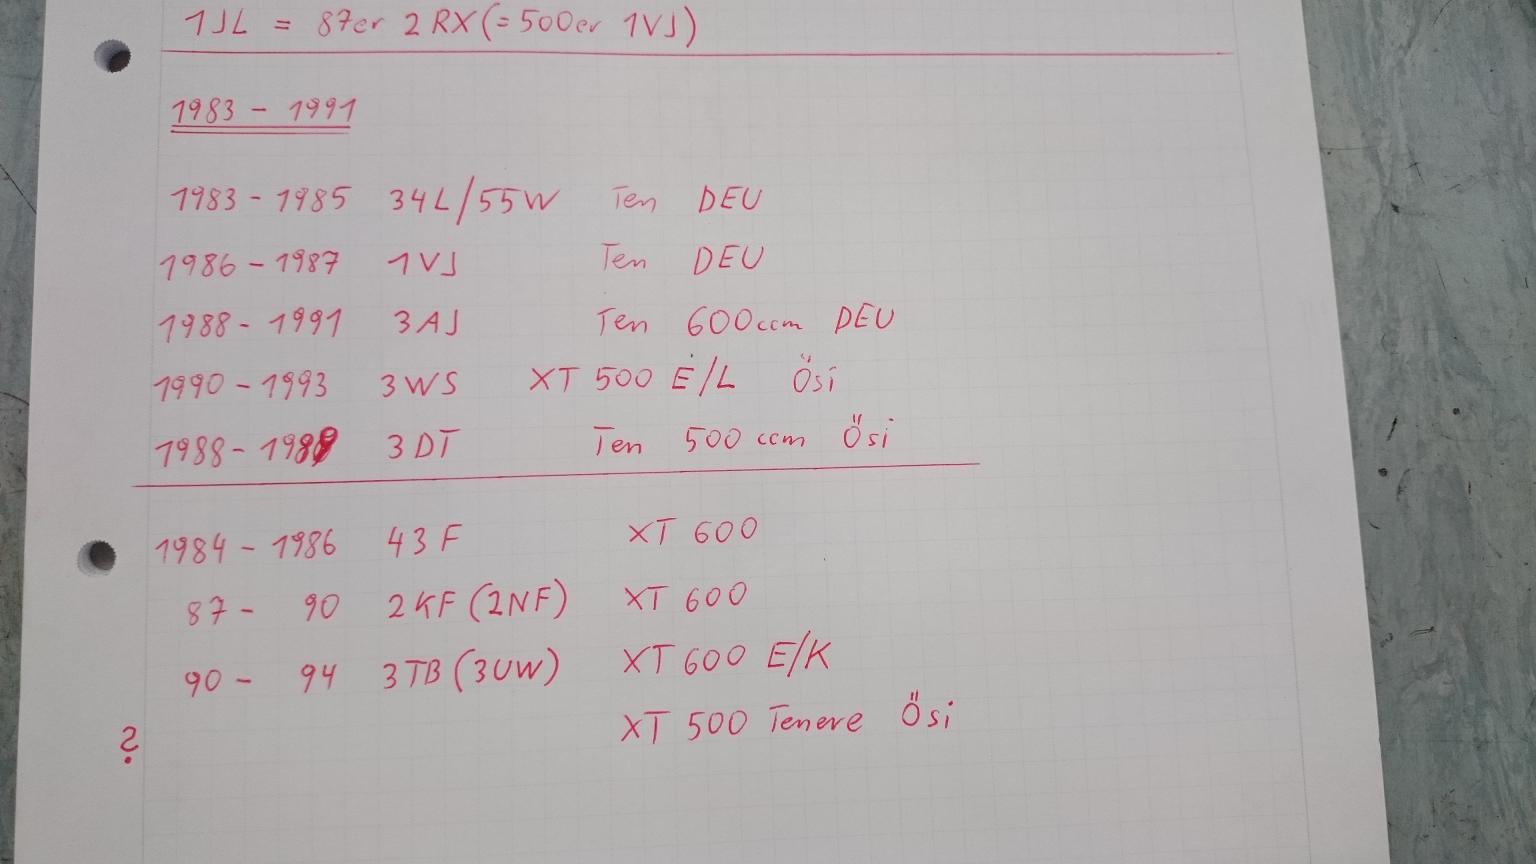 1JL = 87er 2RX (=500er 1VJ)
1983 - 1991
1983 - 1985 34L/55W Ten DEU
1986 - 1987 1VJ Ten DEU
1988 - 1991 3AJ Ten 600ccm DEU
1990 - 1993 3WS XT 500 E/L Ösi
1988 - 198 3DT Ten 500 ccm Ösi
1984 - 1986 43F XT 600
87 - 90 2KF (2NF) XT 600
90 - 94 3TB (3UW) XT 600 E/K
? XT 500 Tenere Ösi